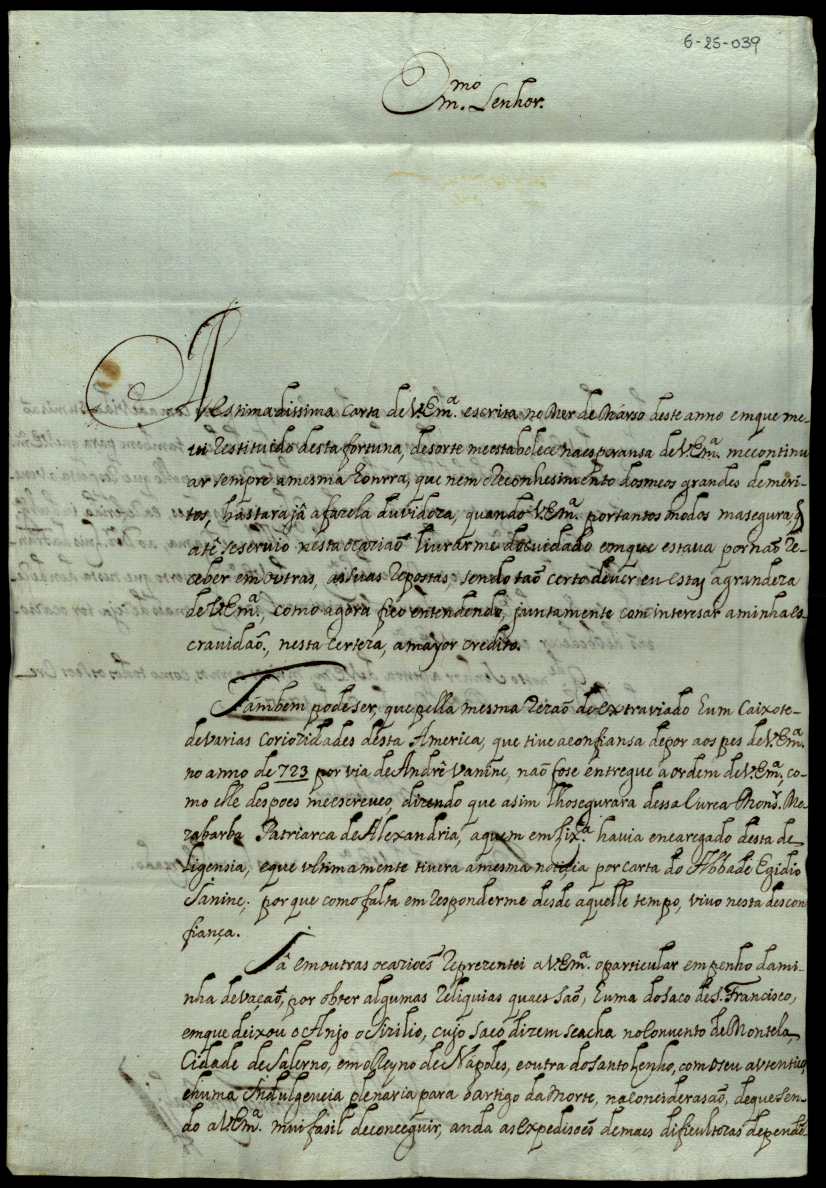 6-25-039
Em.mo Senhor.
A estimadissima carta de V.Em.ª escrita no Mez de Marso deste anno em que me
vi Restituido desta fortuna, de sorte me estabelece na esperansa de V.Em.ª me continu
ar sempre a mesma honrra, que nem o Reconhesimento dos meos grandes demeri-
tos, bastara jâ a fazela duvidoza, quando V.Em.ª por tantos modos ma segura, q̃
atê se servio nesta ocazião livrarme do cuidado em que estava por não Re-
ceber em outras, as suas Repostas; sendo tão certo dever eu estas a grandeza
de V.Em.ª, como agora fico entendendo, juntamente com interesar a minha es-
cravidão, nesta certeza, a mayor credito.
Tambem pode ser, que pella mesma Rezão de extraviado hum Caixote-
de varias coriozidades desta America, que tive a confiansa de por aos pes de V.Em.ª
no anno de 723 por via de Andrê Vanine, não fose entregue a ordem de V.Em.ª, co-
mo elle despoes me escreveo, dizendo que asim lho segurara dessa Curea Mons.r Me-
zabarba Patriarca de Alexandria, a quem em Lix.ª havia encaregado desta de
ligensia, e que ultimamente tivera a mesma noticia por carta do Abbade Egidio
Sanine; por que como falta em Responderme desde aquelle tempo, vivo nesta descon
fiança.
Jâ em outras ocazioẽs Reprezentei a V.Em.ª o particular empenho da mi-
nha devação, por obter algumas Reliquias quaes são, huma do Saco de S. Francisco,
em que deixou o Anjo o Sirilio, cujo saco dizem se acha no Convento de Montela,
Cidade de Salerno, em o Reyno de Nâpoles, e outra do Santo Lenho, com o seu autentico,
e huma Indulgencia plenaria para o artigo da Morte, na Conciderasão, de que sen-
do a V.Em.ª mui fasil de conceguir, anda as expedisoẽs de maes dificultozas dependẽ-